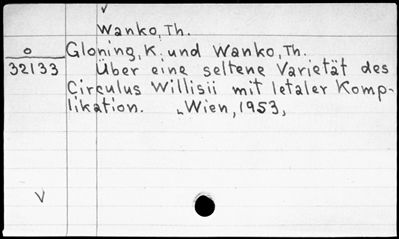 Wanko, Th.
o Gloning, K. und Wanko, Th.
32133 Über eine seltene Varietät des
Circulus Willisii mit letaler Komp-
likation. „Wien, 1953,
V